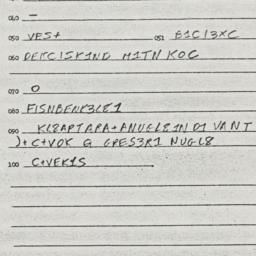 040 —
050 VES+ 051 B1C/3XC
060 DEFC/SK1ND M1TN KOC
070 O
080 FISNBENK3LE1
090 KL8APTAPA+ANUGL81N D1 VANT
)+C+VOK G GPES3R1 NUGL8
100 C+VEK1S